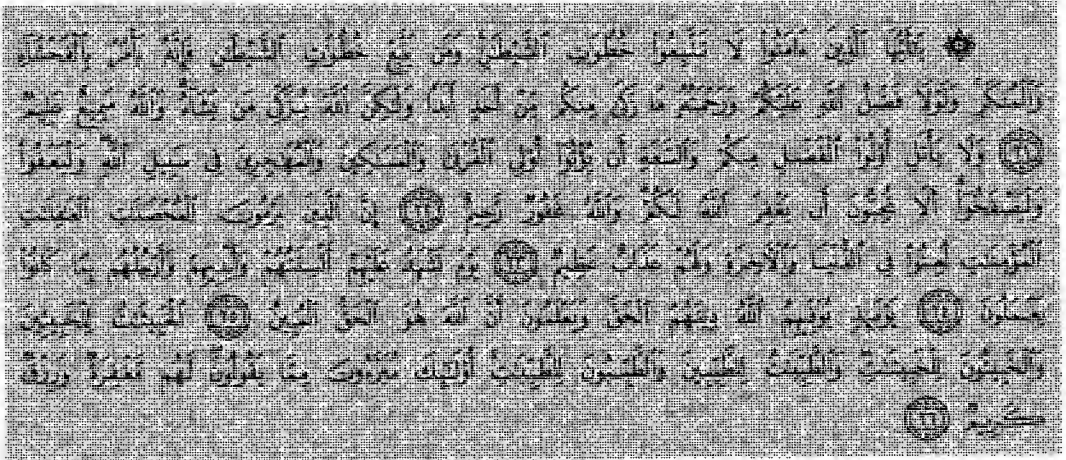 ۞ يَٰٓأَيُّهَا ٱلَّذِينَ ءَامَنُوا۟ لَا تَتَّبِعُوا۟ خُطُوَٰتِ ٱلشَّيْطَٰنِ وَمَن يَتَّبِعْ خُطُوَٰتِ ٱلشَّيْطَٰنِ فَإِنَّهُۥ يَأْمُرُ بِٱلْفَحْشَآءِ
وَٱلْمُنكَرِ وَلَوْلَا فَضْلُ ٱللَّهِ عَلَيْكُمْ وَرَحْمَتُهُۥ مَا زَكَىٰ مِنكُم مِّنْ أَحَدٍ أَبَدًا وَلَٰكِنَّ ٱللَّهَ يُزَكِّى مَن يَشَآءُ وَٱللَّهُ سَمِيعٌ عَلِيمٌ
﴿٢١﴾ وَلَا يَأْتَلِ أُو۟لُوا۟ ٱلْفَضْلِ مِنكُمْ وَٱلسَّعَةِ أَن يُؤْتُوٓا۟ أُو۟لِى ٱلْقُرْبَىٰ وَٱلْمَسَٰكِينَ وَٱلْمُهَٰجِرِينَ فِى سَبِيلِ ٱللَّهِ وَلْيَعْفُوا۟
وَلْيَصْفَحُوٓا۟ أَلَا تُحِبُّونَ أَن يَغْفِرَ ٱللَّهُ لَكُمْ وَٱللَّهُ غَفُورٌ رَّحِيمٌ ﴿٢٢﴾ إِنَّ ٱلَّذِينَ يَرْمُونَ ٱلْمُحْصَنَٰتِ ٱلْغَٰفِلَٰتِ
ٱلْمُؤْمِنَٰتِ لُعِنُوا۟ فِى ٱلدُّنْيَا وَٱلْءَاخِرَةِ وَلَهُمْ عَذَابٌ عَظِيمٌ ﴿٢٣﴾ يَوْمَ تَشْهَدُ عَلَيْهِمْ أَلْسِنَتُهُمْ وَأَيْدِيهِمْ وَأَرْجُلُهُم بِمَا كَانُوا۟
يَعْمَلُونَ ﴿٢٤﴾ يَوْمَئِذٍ يُوَفِّيهِمُ ٱللَّهُ دِينَهُمُ ٱلْحَقَّ وَيَعْلَمُونَ أَنَّ ٱللَّهَ هُوَ ٱلْحَقُّ ٱلْمُبِينُ ﴿٢٥﴾ ٱلْخَبِيثَٰتُ لِلْخَبِيثِينَ
وَٱلْخَبِيثُونَ لِلْخَبِيثَٰتِ وَٱلطَّيِّبَٰتُ لِلطَّيِّبِينَ وَٱلطَّيِّبُونَ لِلطَّيِّبَٰتِ أُو۟لَٰٓئِكَ مُبَرَّءُونَ مِمَّا يَقُولُونَ لَهُم مَّغْفِرَةٌ وَرِزْقٌ
كَرِيمٌ ﴿٢٦﴾